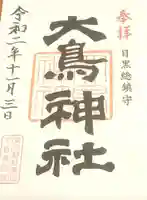 奉拝
目黒総鎮守
大鳥神社
令和二年十一月三日